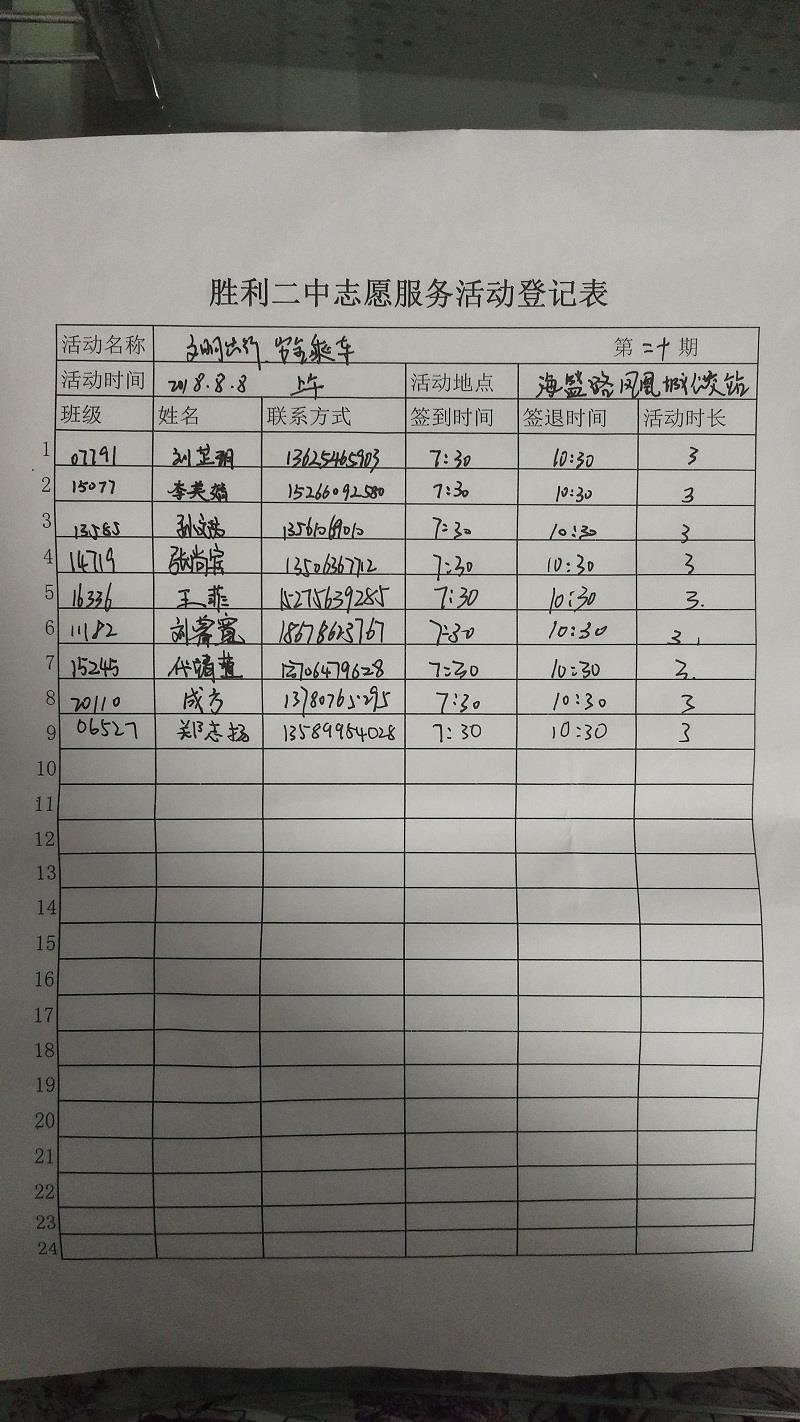 胜利二中志愿服务活动登记表
活动名称 文明出行、安全乘车 第二十期
活动时间 2018.8.8 上午 活动地点 海盐路凤凰城公交站
班级 姓名 联系方式 签到时间 签退时间 活动时长
1 07791 刘芷玥 13625465903 7:30 10:30 3
2 15077 李英 15266092580 7:30 10:30 3
3 13585 孙文 7:30 10:30 3
4 14719 张尚宝 13506367712 7:30 10:30 3
5 16336 王菲 15275639285 7:30 10:30 3.
6 11182 刘 18678623767 7:30 10:30 3
7 15245 代 13706479628 7:30 10:30 3.
8 20110 成方 13780765295 7:30 10:30 3
9 06527 郑志扬 13589954028 7:30 10:30 3
10
11
12
13
14
15
16
17
18
19
20
21
22
23
24